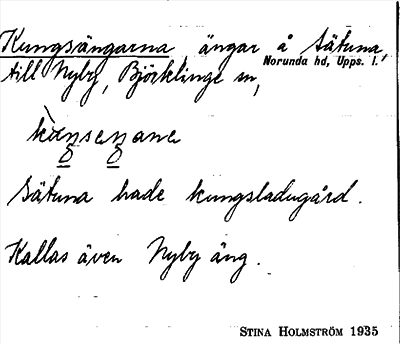 Kungsängarna, ängar å Sätuna,
till Nyby, Björklinge sn,
Norunda hd, Upps. l.
Sätuna hade kungsladugård.
Kallas även Nyby äng.
STINA HOLMSTRÖM 1935